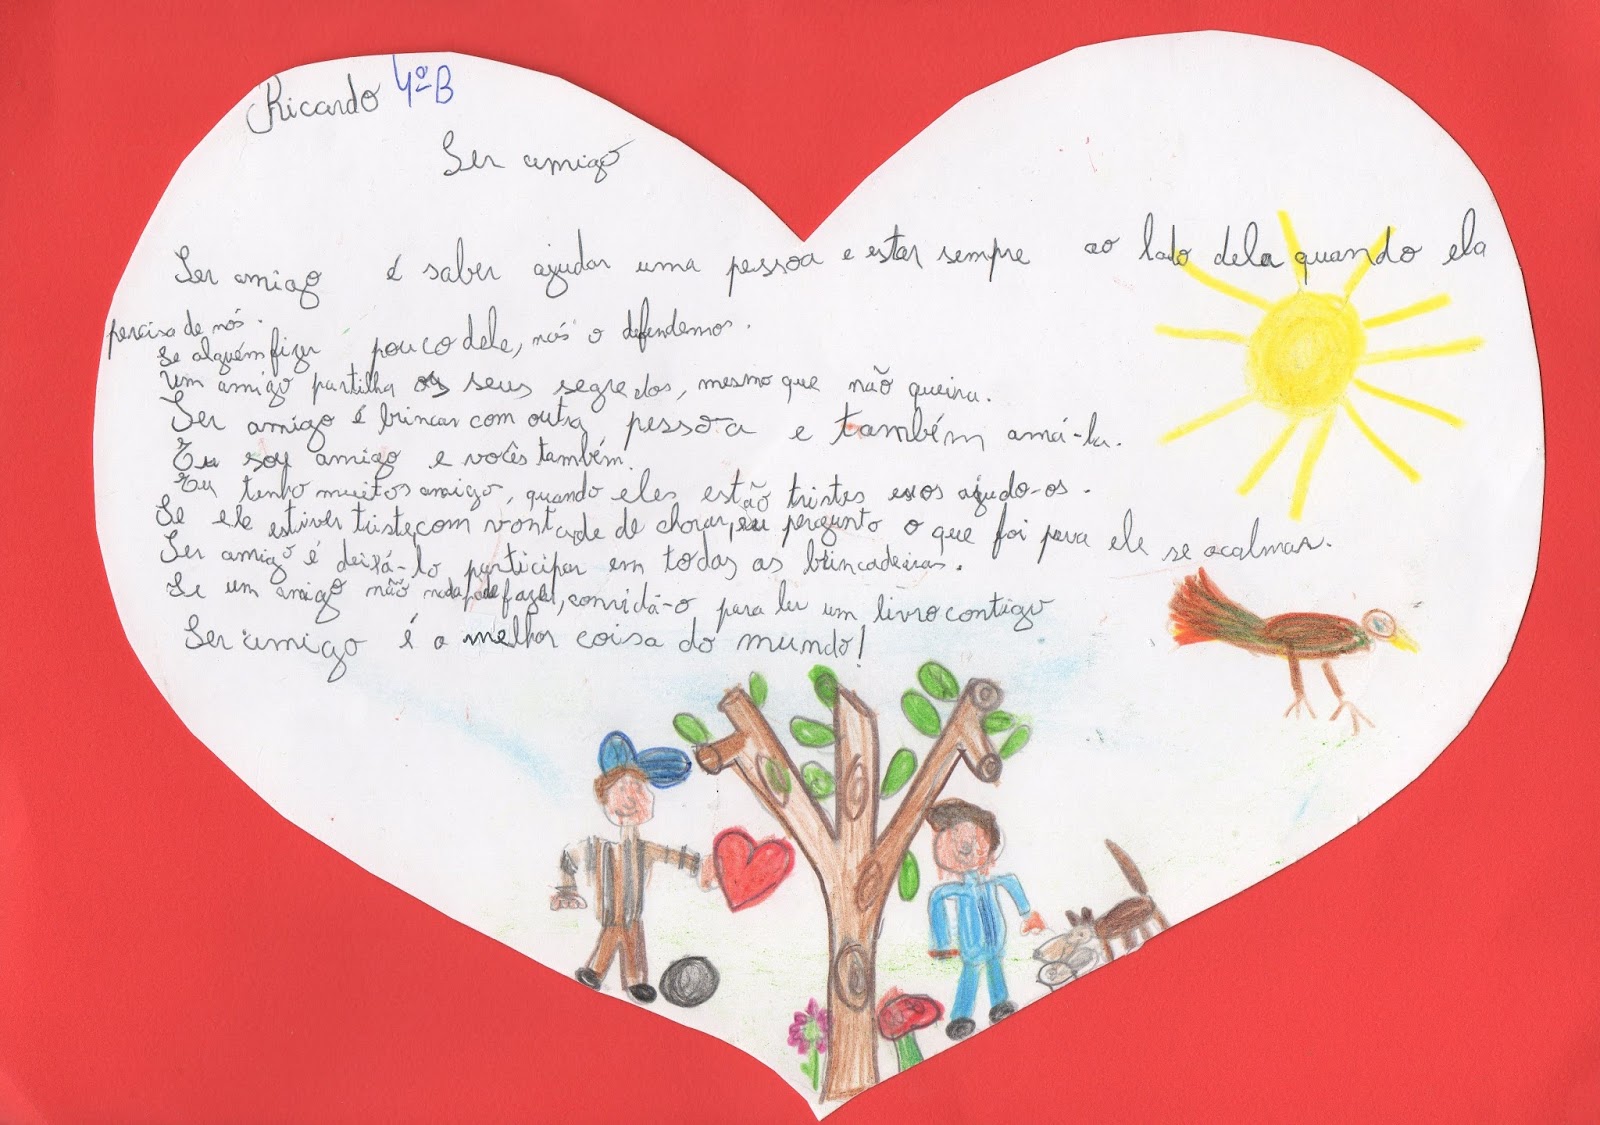 Ricardo 4ºB
Ser amigo
Ser amigo é saber ajudar uma pessoa e estar sempre ao lado dela quando ela
percisa de nós.
Se alguém fizer pouco dele, nós o defendemos.
Um amigo partilha os seus segredos, mesmo que não queira.
Ser amigo é brincar com outra pessoa e também amá-la.
Eu sou amigo e vocês também.
Eu tenho muitos amigo, quando eles estão tristes ajudo-os.
Se ele estiver triste com vontade de chorar, eu pergunto o que foi para ele se acalmar.
Ser amigo é deixá-lo participar em todas as brincadeiras.
Se um amigo não nada pode fazer, convidá-o para ler um livro contigo
Ser amigo é a melhor coisa do mundo!